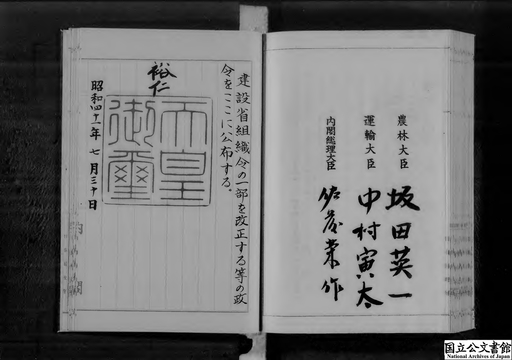 建設省組織令の一部を改正する等の政
令をここに公布する。
裕仁
天皇
御璽
昭和四十一年七月三十日
内閣
農林大臣 坂田英一
運輸大臣 中村寅太
内閣総理大臣 佐藤榮作
国立公文書館
National Archives of Japan